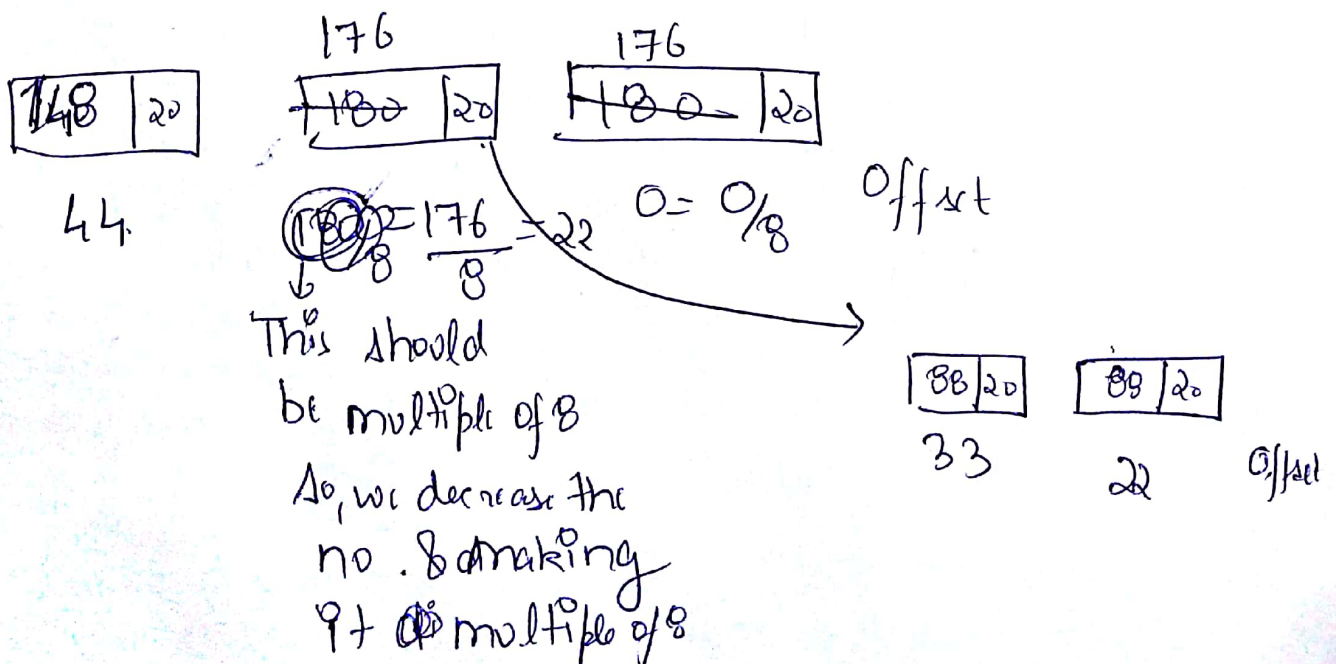 176 176
148 20 180 20 180 20
44. 180/8 = 176/8 = 22 0 = 0/8 Offset
This should
be multiple of 8
So, we decrease the
no. & making
it multiple of 8
88 20 88 20
33 22 Offset